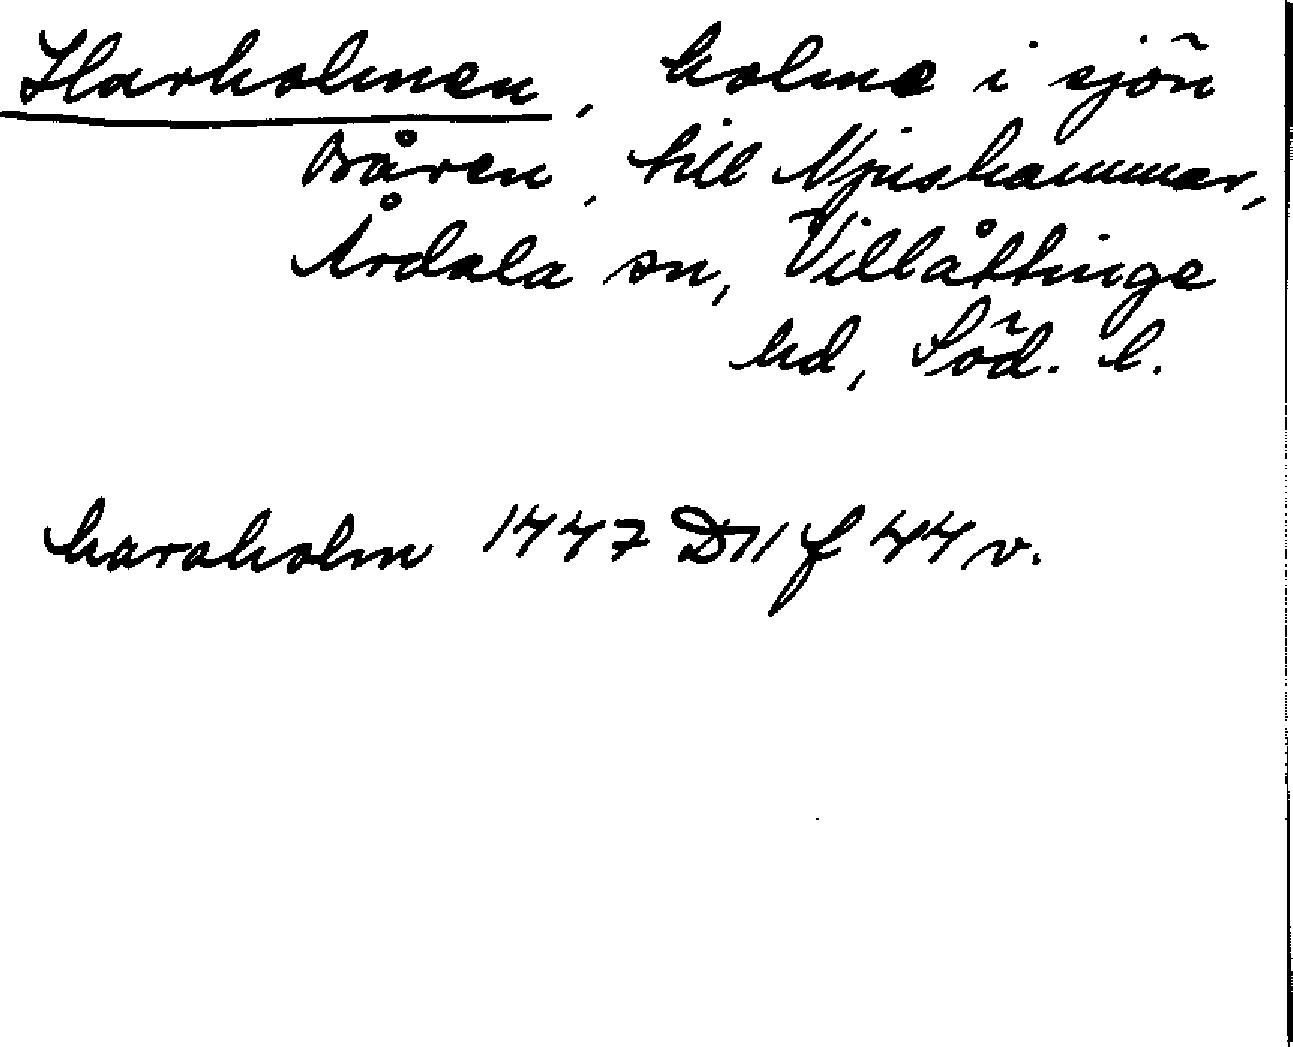 Harholmen, holme i sjön
Båven, till Njushammar,
Årdala sn, Villåttinge
hd, Söd. l.
haraholm 1447 D11 f 44 v.